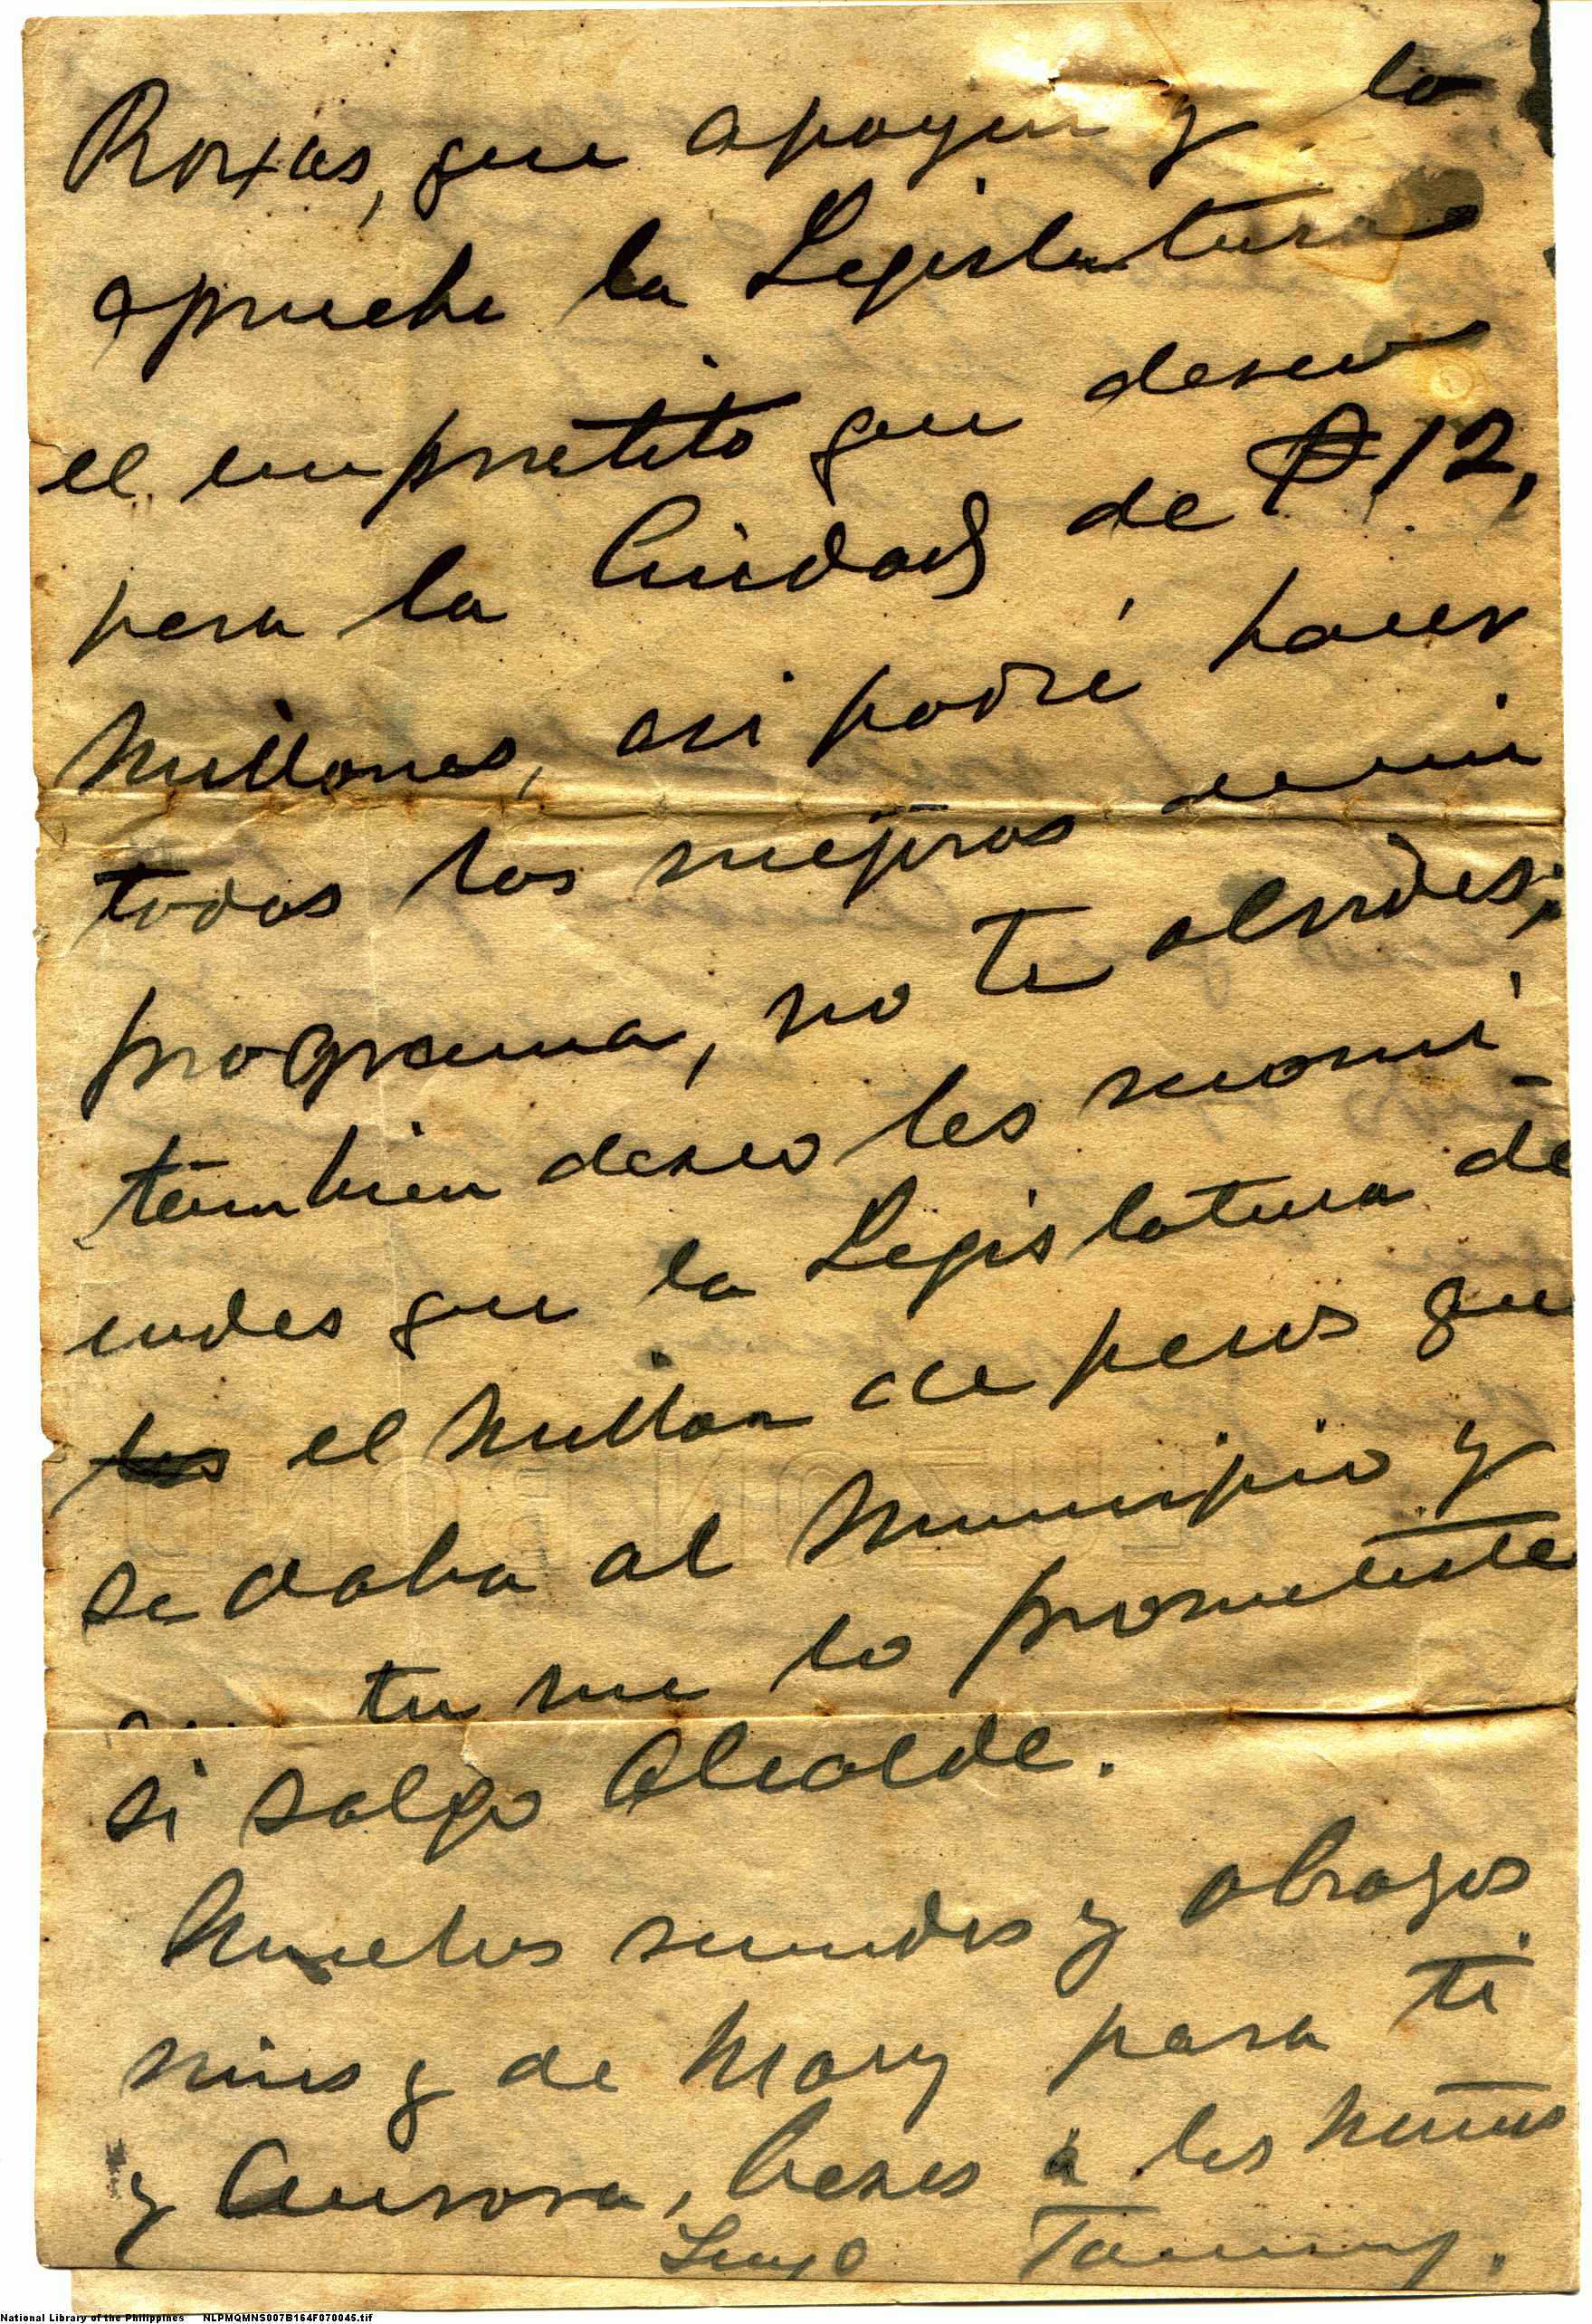 Roxas, que apoyen y lo
apruebe la Legislatura
el emprestito que deseo
para la Ciudad de ₱12,
Millones, asi podré hacer
todas las mejoras de mi
programa, no te olvides;
tambien deseo les recomi
endes que la Legislatura de
el Millon de pesos que
se daba al Municipio y
tu me lo prometiste
si salgo Alcalde.
Muchos saludos y abrazos
mios y de Mary para ti
y Aurora, besos a los niños
Tuyo Tommy.
LUZON BOND
National Library of the Philippines NLPMQMNS007B164F070045.tif